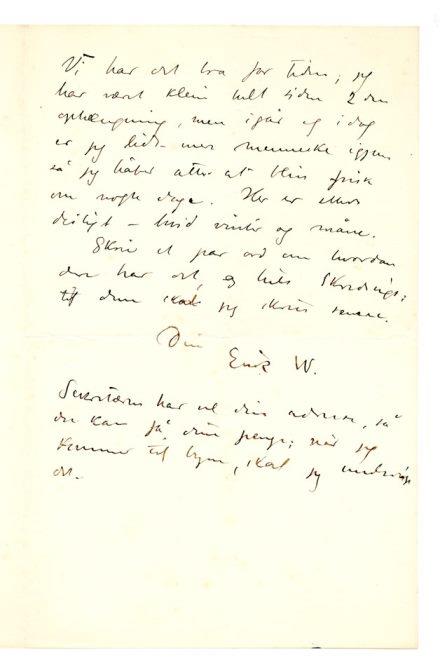 Vi har det bra for tiden; jeg
har været klein helt siden 2den
ophængning, men igår og idag
er jeg lidt mer menneske igjen
så jeg håber atter at blive frisk
om nogle dage. Her er ellers
deiligt – hvid vinter og måne.
Skriv et par ord om hvordan
dere har det, og hils Skredsvigs;
til dem skal jeg skrive senere.
Din
Erik W.
Sekretæren har vel din adresse, så
du kan få dine penge; når jeg
kommer til byen, skal jeg undersøge
det.